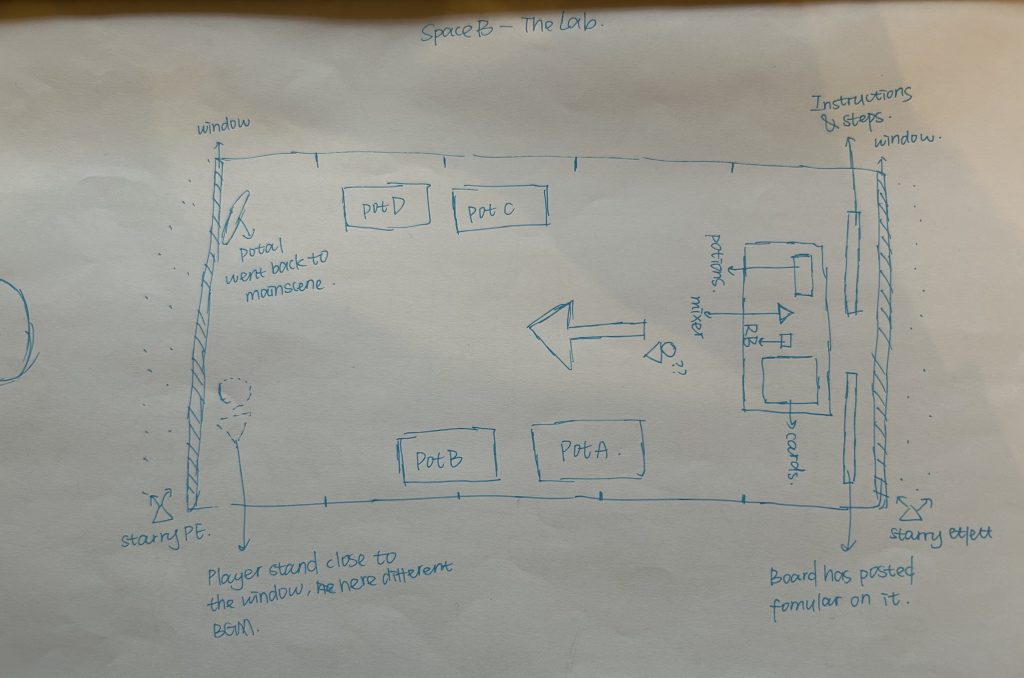 Space B – The Lab.
window
Instructions
& steps.
window.
pot D
pot C
potal
went back to
mainscene.
potions.
mixer
RB
??
cards.
Pot B
Pot A.
starry PE.
starry
Player stand close to
the window, here different
BGM.
Board has posted
fomular on it.